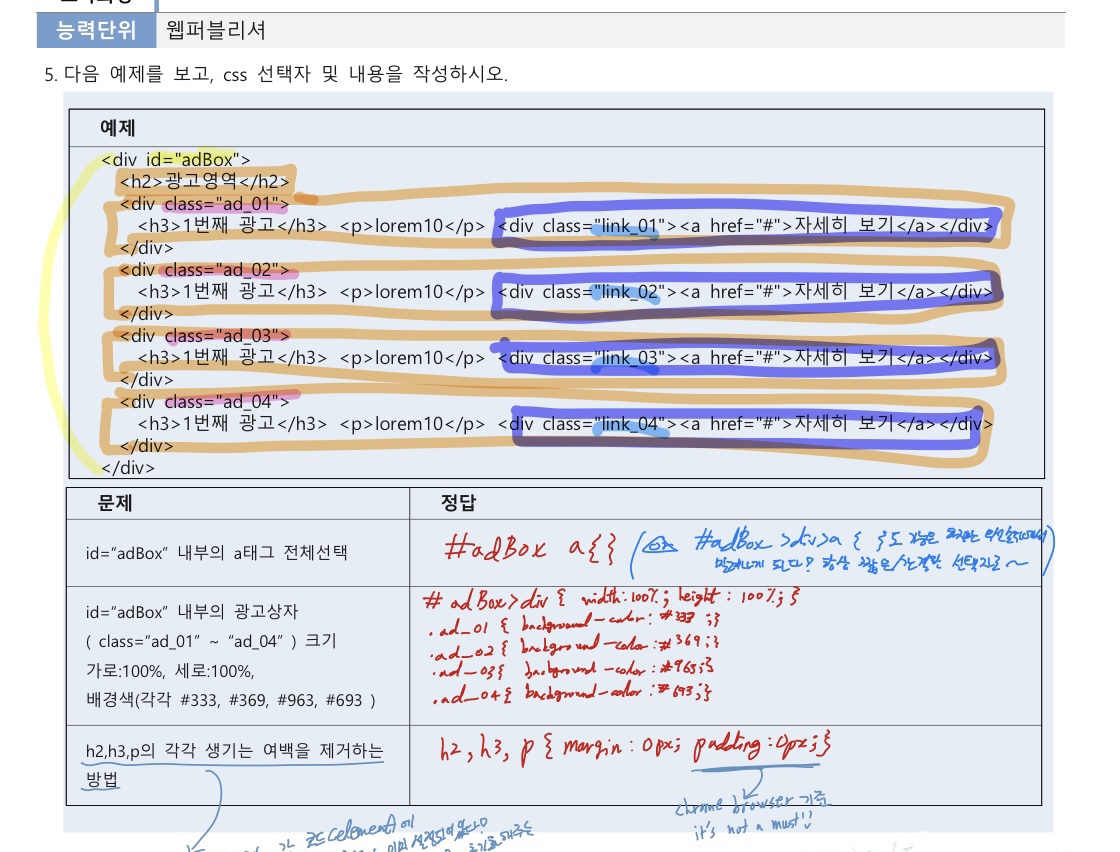 능력단위 웹퍼블리셔
5. 다음 예제를 보고, css 선택자 및 내용을 작성하시오.
예제
<div id="adBox">
<h2>광고영역</h2>
<div class="ad_01">
<h3>1번째 광고</h3> <p>lorem10</p> <div class="link_01"><a href="#">자세히 보기</a></div>
</div>
<div class="ad_02">
<h3>1번째 광고</h3> <p>lorem10</p> <div class="link_02"><a href="#">자세히 보기</a></div>
</div>
<div class="ad_03">
<h3>1번째 광고</h3> <p>lorem10</p> <div class="link_03"><a href="#">자세히 보기</a></div>
</div>
<div class="ad_04">
<h3>1번째 광고</h3> <p>lorem10</p> <div class="link_04"><a href="#">자세히 보기</a></div>
</div>
</div>
문제 정답
id=“adBox” 내부의 a태그 전체선택
#adBox a{} ( #adBox >div>a { }도 가능은
되다? 항상 짧은/간결한 선택자로 ~ )
id=“adBox” 내부의 광고상자
( class=“ad_01” ~ “ad_04” ) 크기
가로:100%, 세로:100%,
배경색(각각 #333, #369, #963, #693 )
# adBox>div { width:100%; height : 100%; }
.ad_01 { background-color: #333 ;}
.ad_02 { background-color: #369;}
.ad_03{ background-color: #963;}
.ad_04{ background-color: #693;}
h2,h3,p의 각각 생기는 여백을 제거하는
방법
h2, h3, p { margin: 0px; padding:0px;}
chrome browser 기준
it's not a must!!
각 코드(element)에